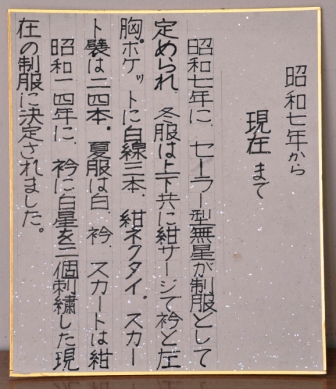 昭和七年から
現在まで
昭和七年に、セーラー型無星が制服として
定められ、冬服は上下共に紺サージで衿と左
胸ポケットに白線三本、紺ネクタイ。スカー
ト襞は二四本。夏服は白、衿、スカートは紺
昭和二四年に、衿に白星を二個刺繍した現
在の制服に決定されました。